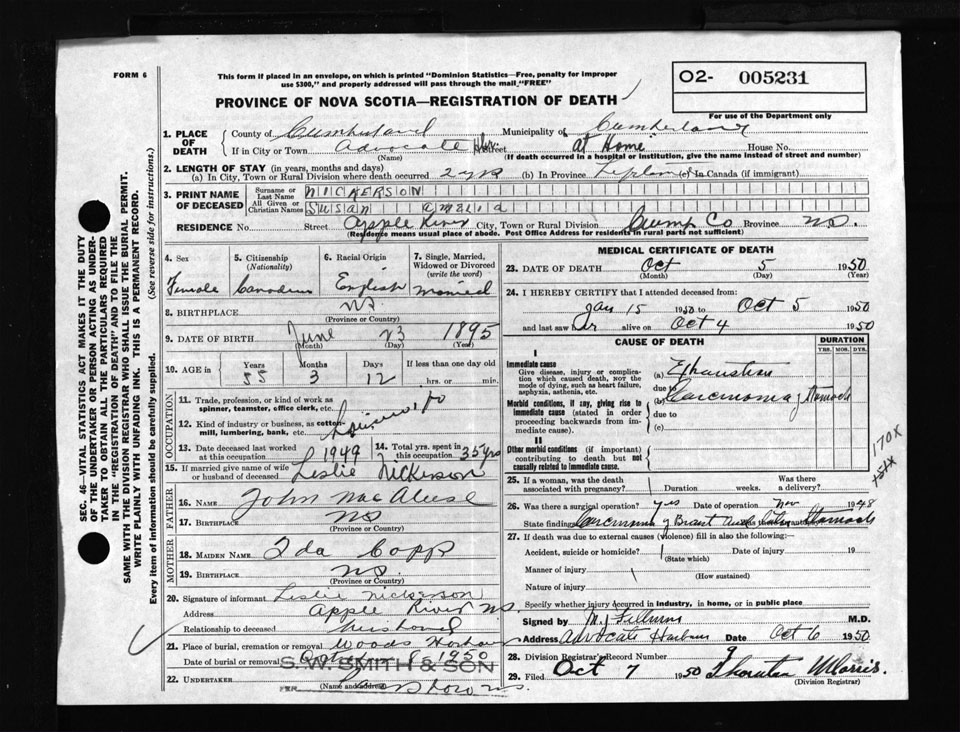 FORM 6
This form if placed in an envelope, on which is printed "Dominion Statistics—Free, penalty for improper
use $300," and properly addressed will pass through the mail "FREE"
O2- 005231
For use of the Department only
PROVINCE OF NOVA SCOTIA—REGISTRATION OF DEATH
SEC. 46—VITAL STATISTICS ACT MAKES IT THE DUTY
OF THE UNDERTAKER OR PERSON ACTING AS UNDER-
TAKER TO OBTAIN ALL THE PARTICULARS REQUIRED
IN THE "REGISTRATION OF DEATH" AND TO FILE THE
SAME WITH THE DIVISION REGISTRAR WHO SHALL ISSUE THE BURIAL PERMIT.
WRITE PLAINLY WITH UNFADING INK. THIS IS A PERMANENT RECORD.
Every item of information should be carefully supplied. (See reverse side for instructions.)
1. PLACE OF DEATH County of Cumberland Municipality of Cumberland
If in City or Town Advocate Street At Home House No.
(Name) (If death occurred in a hospital or institution, give the name instead of street and number)
2. LENGTH OF STAY (in years, months and days)
(a) In City, Town or Rural Division where death occurred 2 yrs (b) In Province (c) In Canada (if immigrant)
3. PRINT NAME OF DECEASED Surname or Last Name NICKERSON
All Given or Christian Names SUSAN AMELIA
RESIDENCE No. Street Apple River City, Town or Rural Division Cump Co Province NS.
(Residence means usual place of abode. Post Office Address for residents in rural parts not sufficient)
4. Sex 5. Citizenship (Nationality) 6. Racial Origin 7. Single, Married, Widowed or Divorced (write the word)
Female Canadian English Married
8. BIRTHPLACE NS.
(Province or Country)
9. DATE OF BIRTH June 23 1895
(Month) (Day) (Year)
10. AGE in Years Months Days If less than one day old
55 3 12 hrs. or min.
OCCUPATION
11. Trade, profession, or kind of work as spinner, teamster, office clerk, etc.
12. Kind of industry or business, as cotton-mill, lumbering, bank, etc.
13. Date deceased last worked at this occupation 1949 14. Total yrs. spent in this occupation 35 yrs
15. If married give name of wife or husband of deceased Leslie Nickerson
FATHER
16. Name John MacAleese
17. Birthplace NS
(Province or Country)
MOTHER
18. MAIDEN NAME Ida Copp
19. BIRTHPLACE NS.
(Province or Country)
20. Signature of informant Leslie Nickerson
Address Apple River NS.
Relationship to deceased husband
21. Place of burial, cremation or removal Woods
Date of burial or removal 8 1950
22. UNDERTAKER S. W. SMITH & SON
(Name and
PER
MEDICAL CERTIFICATE OF DEATH
23. DATE OF DEATH Oct 5 1950
(Month) (Day) (Year)
24. I HEREBY CERTIFY that I attended deceased from:
Jan 15 1950 to Oct 5 1950
and last saw her alive on Oct 4 1950
CAUSE OF DEATH DURATION
YRS. MOS. DYS.
I
Immediate cause
Give disease, injury or complication which caused death, NOT the mode of dying, such as heart failure, asphyxia, asthenia, etc.
(a) Exhaustion
due to
Morbid conditions, if any, giving rise to immediate cause (stated in order proceeding backwards from immediate cause).
(b) Carcinoma of Stomach
due to
(c)
II
Other morbid conditions (if important) contributing to death but not causally related to immediate cause.
170X
+51X
25. If a woman, was the death associated with pregnancy? Duration weeks. Was there a delivery?
26. Was there a surgical operation? yes Date of operation Nov 1948
State findings Carcinoma of Breast Stomach
27. If death was due to external causes (violence) fill in also the following:—
Accident, suicide or homicide? Date of injury 19
(State which)
Manner of injury
(How sustained)
Nature of injury
Specify whether injury occurred in industry, in home, or in public place
Signed by M.D.
Address Advocate Harbour Date Oct 6 1950
28. Division Registrar's Record Number 9
29. Filed Oct 7 1950 Thornton Morris.
(Division Registrar)